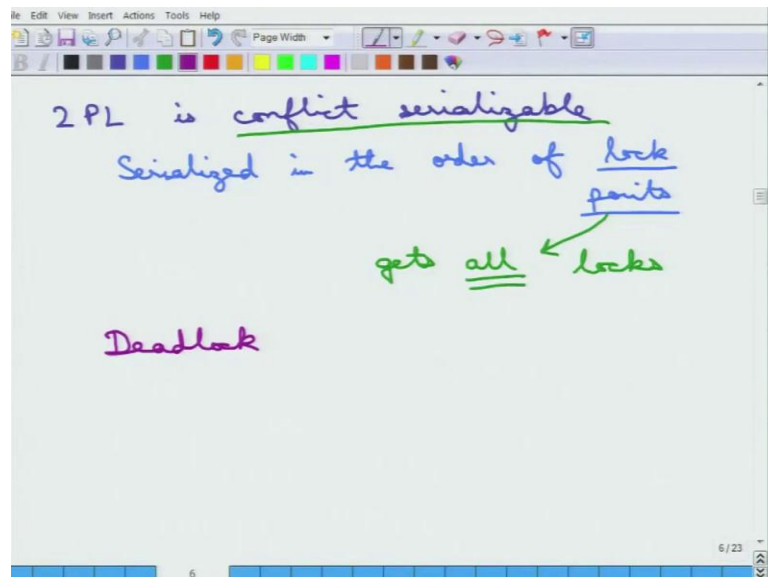 ile Edit View Insert Actions Tools Help
Page Width
B I
2 PL is conflict serializable
Serialized in the order of lock
points
gets all locks
Deadlock
6/23
6